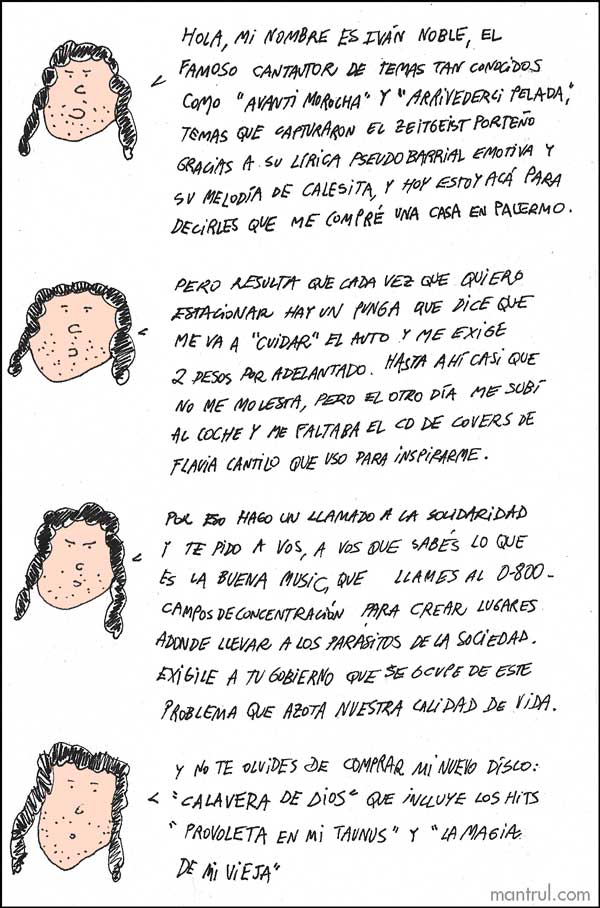 HOLA, MI NOMBRE ES IVÁN NOBLE, EL
FAMOSO CANTAUTOR DE TEMAS TAN CONOCIDOS
COMO "AVANTI MOROCHA" Y "ARRIVEDERCI PELADA",
TEMAS QUE CAPTURARON EL ZEITGEIST PORTEÑO
GRACIAS A SU LÍRICA PSEUDOBARRIAL EMOTIVA Y
SU MELODÍA DE CALESITA, Y HOY ESTOY ACÁ PARA
DECIRLES QUE ME COMPRÉ UNA CASA EN PALERMO.
PERO RESULTA QUE CADA VEZ QUE QUIERO
ESTACIONAR HAY UN PUNGA QUE DICE QUE
ME VA A "CUIDAR" EL AUTO Y ME EXIGE
2 PESOS POR ADELANTADO. HASTA AHÍ CASI QUE
NO ME MOLESTA, PERO EL OTRO DÍA ME SUBÍ
AL COCHE Y ME FALTABA EL CD DE COVERS DE
FLAVIA CANTILO QUE USO PARA INSPIRARME.
POR ESO HAGO UN LLAMADO A LA SOLIDARIDAD
Y TE PIDO A VOS, A VOS QUE SABÉS LO QUE
ES LA BUENA MUSIC, QUE LLAMES AL 0-800-
CAMPOS DE CONCENTRACIÓN PARA CREAR LUGARES
ADONDE LLEVAR A LOS PARÁSITOS DE LA SOCIEDAD.
EXIGILE A TU GOBIERNO QUE SE OCUPE DE ESTE
PROBLEMA QUE AZOTA NUESTRA CALIDAD DE VIDA.
Y NO TE OLVIDES DE COMPRAR MI NUEVO DISCO:
"CALAVERA DE DIOS" QUE INCLUYE LOS HITS
"PROVOLETA EN MI TAUNUS" Y "LA MAGIA
DE MI VIEJA"
mantrul.com